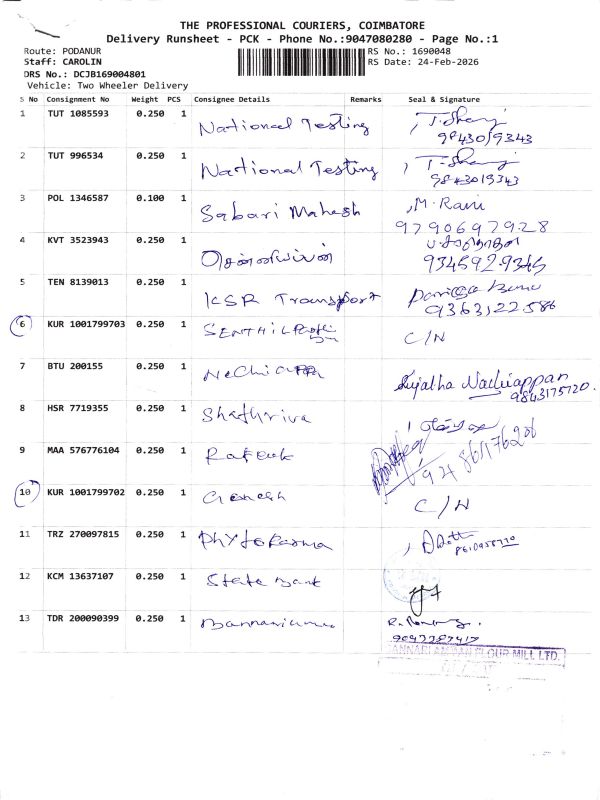 THE PROFESSIONAL COURIERS, COIMBATORE
Delivery Runsheet - PCK - Phone No.:9047080280 - Page No.:1
Route: PODANUR RS No.: 1690048
Staff: CAROLIN RS Date: 24-Feb-2026
DRS No.: DCJB169004801
Vehicle: Two Wheeler Delivery
S No Consignment No Weight PCS Consignee Details Remarks Seal & Signature
1 TUT 1085593 0.250 1 National Testing
9843019343
2 TUT 996534 0.250 1 National Testing
9843019343
3 POL 1346587 0.100 1 Sabari Mahesh M. Rani
9790697928
4 KVT 3523943 0.250 1
9345929345
5 TEN 8139013 0.250 1 KSR Transport
9363122586
6 KUR 1001799703 0.250 1 SENTHIL C/N
7 BTU 200155 0.250 1 Sujatha Nachiappan
9843175720.
8 HSR 7719355 0.250 1 Shathriya
9 MAA 576776104 0.250 1 Rafeek
10 KUR 1001799702 0.250 1 Ganesh C/N
11 TRZ 270097815 0.250 1
12 KCM 13637107 0.250 1 State Bank
13 TDR 200090399 0.250 1
BANNARI AMMAN FLOUR MILL LTD.